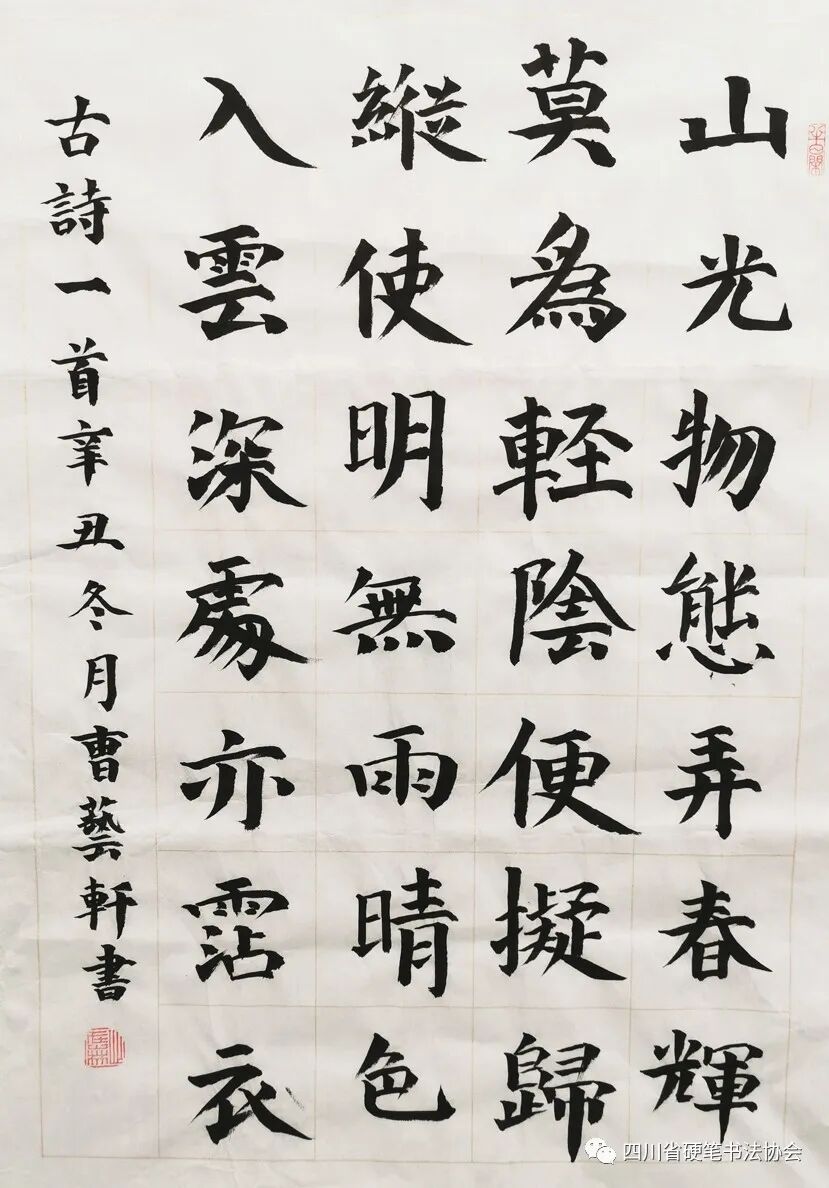 山光物態弄春輝
莫為軽陰便擬歸
縦使明無雨晴色
入雲深處亦霑衣
古詩一首辛丑冬月曹藝軒書
四川省硬笔书法协会